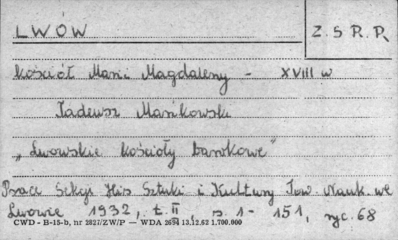 LWÓW
Z.S.R.R.
Kościół Marii Magdaleny – XVIII w
Tadeusz Mańkowski
„Lwowskie kościoły barokowe"
Prace Sekcji His Sztuki i Kultury Tow. Nauk. we
Lwowie 1932, t. II s. 1 - 151, ryc. 68
CWD - B-15-b, nr 2827/ZW/P — WDA 2694 13.12.62 1.700.000